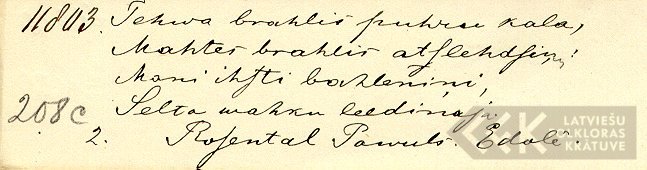 11803. Tehwa brahlis puhru kala,
Mahtes brahlis atslehdsiņ';
Mani ihsti bahleniņi,
208c Selta wahku leediņaja.
2. Rosental Pawuls. Edolē.
LATVIEŠU
FOLKLORAS
KRĀTUVE